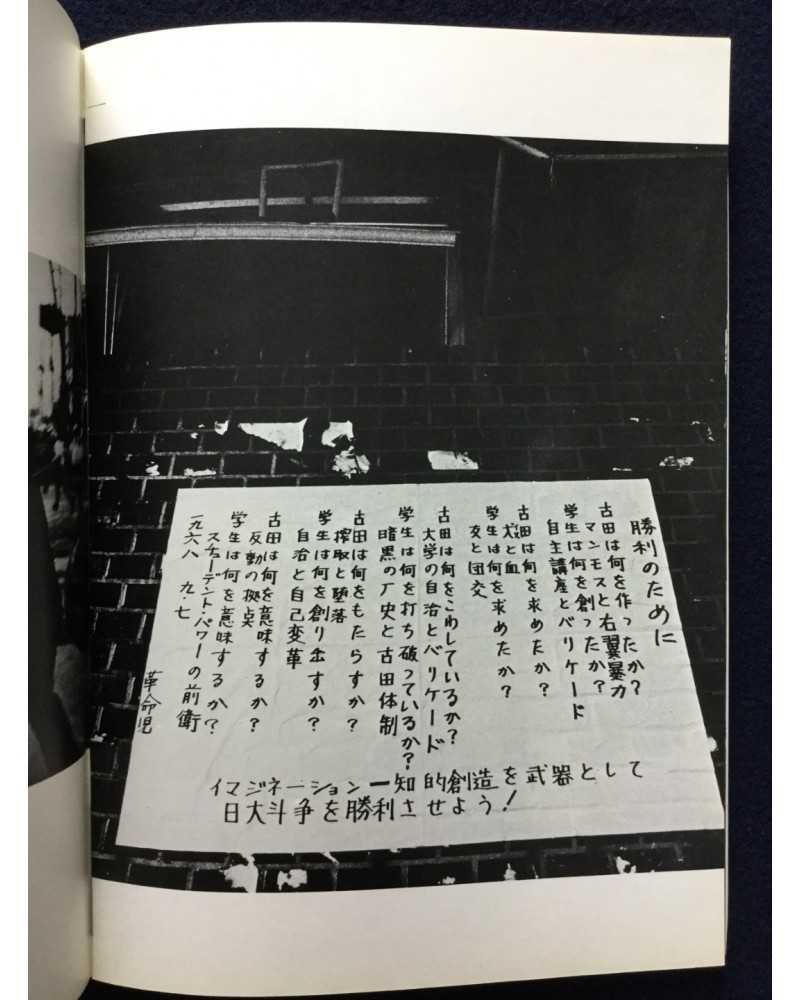 勝利のために
古田は何を作ったか?
マンモスと右翼暴力
学生は何を創ったか?
自主講座とバリケード
古田は何を求めたか?
犬と血
学生は何を求めたか?
文と団交
古田は何をこわしているか?
大学の自治とバリケード
学生は何を打ち破っているか?
暗黒の厂史と古田体制
古田は何をもたらすか?
搾取と堕落
学生は何を創り出すか?
自治と自己変革
古田は何を意味するか?
反動の拠点
学生は何を意味するか?
スチューデント・パワーの前衛
一九六八 九・七
革命児
イマジネーション一知的創造を武器として
日大斗争を勝利させよう!